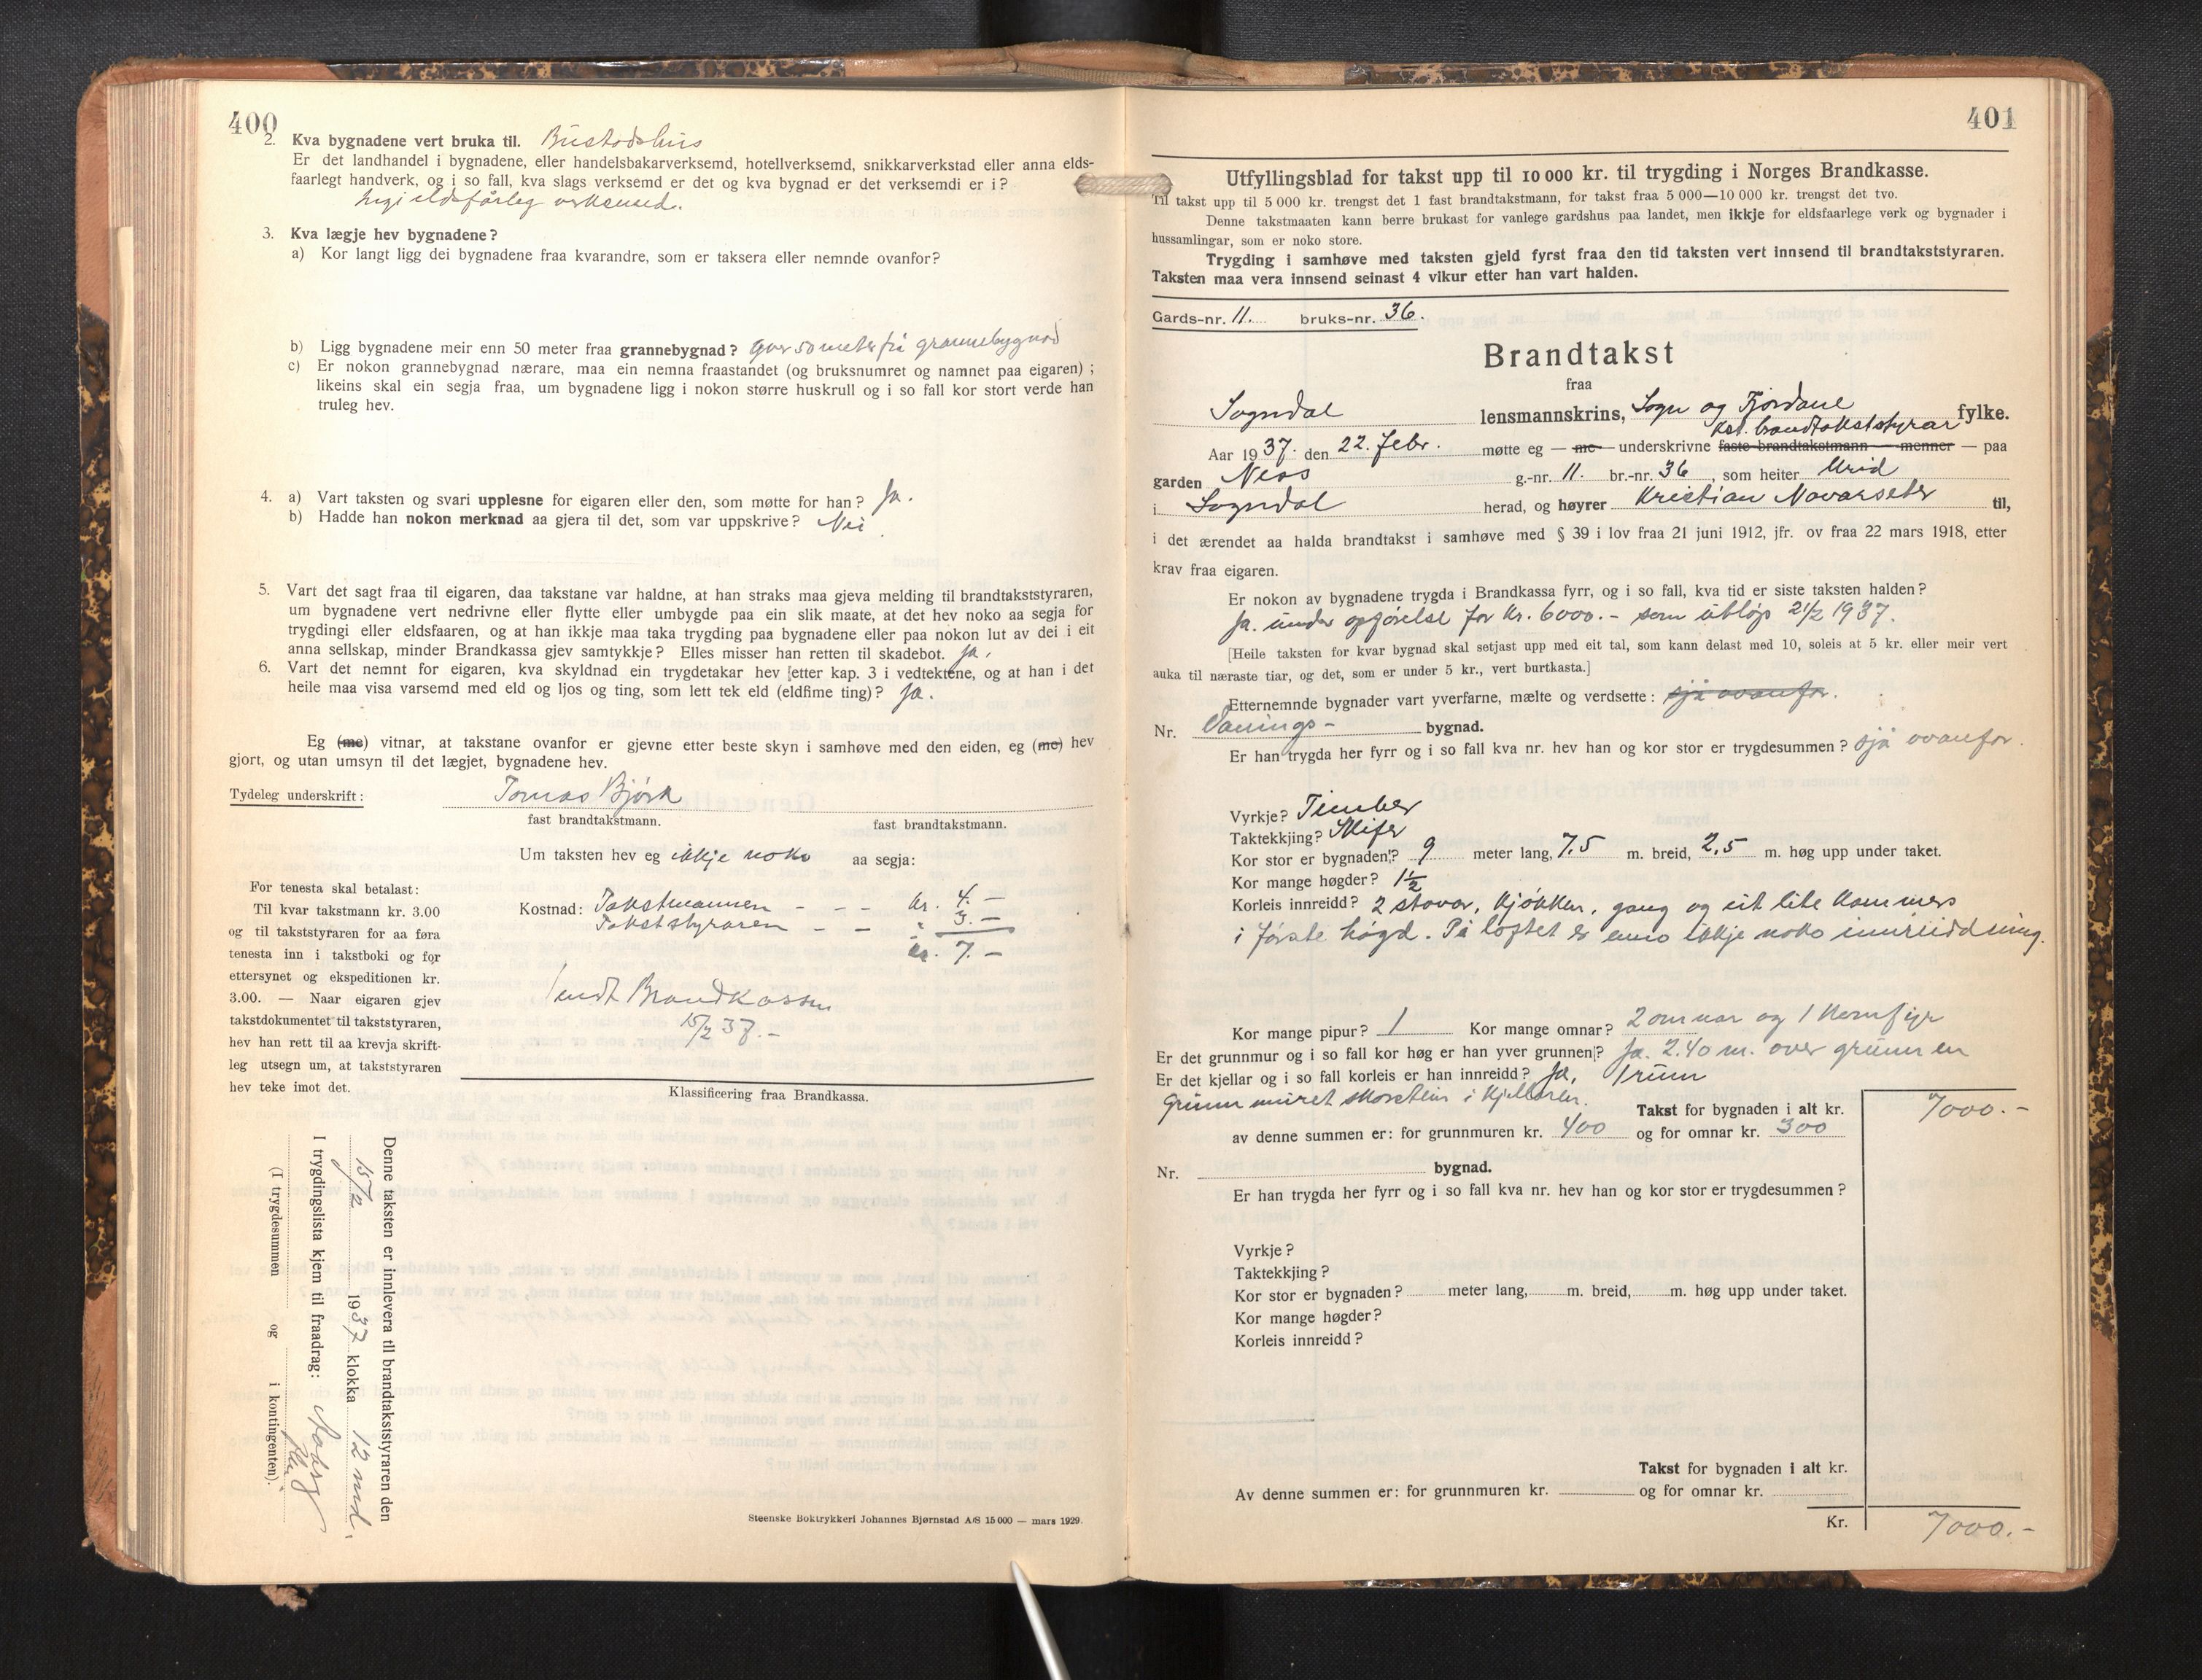 400
2. Kva bygnadene vert bruka til. Bustadshus
Er det landhandel i bygnadene, eller handelsbakarverksemd, hotellverksemd, snikkarverkstad eller anna elds-
faarlegt handverk, og i so fall, kva slags verksemd er det og kva bygnad er det verksemdi er i?
Ingi eldsfårleg verksemd.
3. Kva lægje hev bygnadene?
a) Kor langt ligg dei bygnadene fraa kvarandre, som er taksera eller nemnde ovanfor?
b) Ligg bygnadene meir enn 50 meter fraa grannebygnad? over 50 meter frå grannebygnad
c) Er nokon grannebygnad nærare, maa ein nemna fraastandet (og bruksnumret og namnet paa eigaren);
likeins skal ein segja fraa, um bygnadene ligg i nokon større huskrull og i so fall kor stort verde han
truleg hev.
4. a) Vart taksten og svari upplesne for eigaren eller den, som møtte for han? Ja.
b) Hadde han nokon merknad aa gjera til det, som var uppskrive? Nei
5. Vart det sagt fraa til eigaren, daa takstane var haldne, at han straks maa gjeva melding til brandtakststyraren,
um bygnadene vert nedrivne eller flytte eller umbygde paa ein slik maate, at det hev noko aa segja for
trygdingi eller eldsfaaren, og at han ikkje maa taka trygding paa bygnadene eller paa nokon lut av dei i eit
anna sellskap, minder Brandkassa gjev samtykkje? Elles misser han retten til skadebot. Ja,
6. Vart det nemnt for eigaren, kva skyldnad ein trygdetakar hev [etter kap. 3 i vedtektene, og at han i det
heile maa visa varsemd med eld og ljos og ting, som lett tek eld (eldfime ting)? Ja.
Eg (me) vitnar, at takstane ovanfor er gjevne etter beste skyn i samhøve med den eiden, eg (me) hev
gjort, og utan umsyn til det lægjet, bygnadene hev.
Tydeleg underskrift: Tomas Bjørk
fast brandtakstmann. fast brandtakstmann.
Um taksten hev eg ikkje noko aa segja:
For tenesta skal betalast:
Til kvar takstmann kr. 3.00
og til takststyraren for aa føra
tenesta inn i takstboki og for
ettersynet og ekspeditionen kr.
3.00. — Naar eigaren gjev
takstdokumentet til takststyraren,
hev han rett til aa krevja skrift-
leg utsegn um, at takststyraren
hev teke imot det.
Kostnad: Takstmannen - - - kr. 4.—
Takststyraren - - " 3.—
kr. 7.—
Sendt Brandkassen
15/2 37.-
Klassificering fraa Brandkassa.
Denne taksten er innlevera til brandtakststyraren den
15/2 1937 klokka 12 md.
I trygdingslista kjem til fraadrag:
(I trygdesummen og i kontingenten).
Steenske Boktrykkeri Johannes Bjørnstad A/S 15 000 — mars 1929.
401
Utfyllingsblad for takst upp til 10 000 kr. til trygding i Norges Brandkasse.
Til takst upp til 5 000 kr. trengst det 1 fast brandtakstmann, for takst fraa 5 000—10 000 kr. trengst det tvo.
Denne takstmaaten kann berre brukast for vanlege gardshus paa landet, men ikkje for eldsfaarlege verk og bygnader i
hussamlingar, som er noko store.
Trygding i samhøve med taksten gjeld fyrst fraa den tid taksten vert innsend til brandtakststyraren.
Taksten maa vera innsend seinast 4 vikur etter han vart halden.
Gards-nr. 11. bruks-nr. 36.
Brandtakst
fraa
Sogndal lensmannskrins, Sogn og Fjordane fylke.
kst. brandtakststyrar
Aar 1937. den 22. febr. møtte eg — me — underskrivne faste brandtakstmann — menner — paa
garden Ness g.-nr. 11. br.-nr. 36, som heiter Urid
i Sogndal herad, og høyrer Kristian Navarseter til,
i det ærendet aa halda brandtakst i samhøve med § 39 i lov fraa 21 juni 1912, jfr. ov fraa 22 mars 1918, etter
krav fraa eigaren.
Er nokon av bygnadene trygda i Brandkassa fyrr, og i so fall, kva tid er siste taksten halden?
Ja. under opførelse for kr. 6000.- som utløp 21/2 1937.
[Heile taksten for kvar bygnad skal setjast upp med eit tal, som kann delast med 10, soleis at 5 kr. eller meir vert
auka til næraste tiar, og det, som er under 5 kr., vert burtkasta.]
Etternemnde bygnader vart yverfarne, mælte og verdsette: sjå ovanfor.
Nr. Vaanings- bygnad.
Er han trygda her fyrr og i so fall kva nr. hev han og kor stor er trygdesummen? sjå ovanfor.
Vyrkje? Timber
Taktekkjing? Skifer
Kor stor er bygnaden? 9 meter lang, 7.5 m. breid, 2.5 m. høg upp under taket.
Kor mange høgder? 1½
Korleis innreidd? 2 stovor, kjøkken, gang og eit lite kammers
i første høgd. På loftet er enno ikkje noko innreiddning.
Kor mange pipur? 1 Kor mange omnar? 2 omnar og 1 komfyr
Er det grunnmur og i so fall kor høg er han yver grunnen? Ja. 2.40 m. over grunnen
Er det kjellar og i so fall korleis er han innreidd? Ja, 1 rum
Grunnmuret skorstein i kjellaren.
Takst for bygnaden i alt kr. 7000.-
av denne summen er: for grunnmuren kr. 400 og for omnar kr. 300
Nr. bygnad.
Er han trygda her fyrr og i so fall kva nr. hev han og kor stor er trygdesummen?
Vyrkje?
Taktekkjing?
Kor stor er bygnaden? meter lang, m. breid, m. høg upp under taket.
Kor mange høgder?
Korleis innreidd?
Takst for bygnaden i alt kr.
Av denne summen er: for grunnmuren kr. og for omnar kr.
Kr. 7000.-